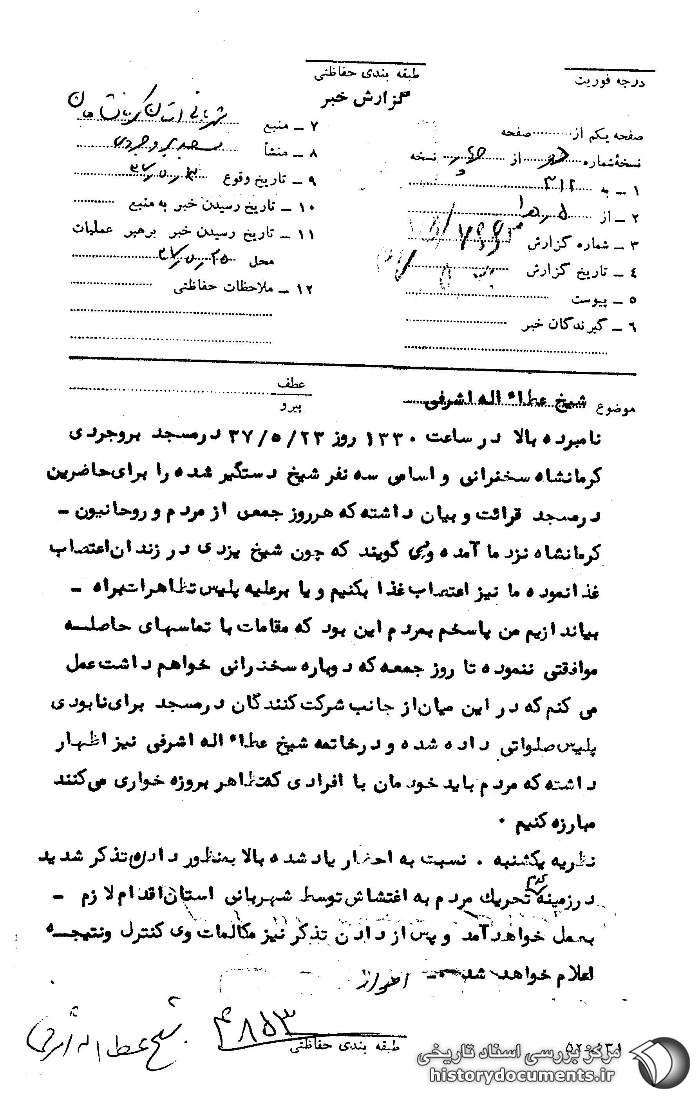 درجه فوریت
طبقه بندی حفاظتی
گزارش خبر
صفحه یکم از صفحه
نسخه شماره از چهار نسخه
۱ ــ به ۳۱۲
۲ ــ از ۵ ر هـ ۱
۳ ــ شماره گزارش
۴ ــ تاریخ گزارش
۵ ــ پیوست
۶ ــ گیرندگان خبر
۷ ــ منبع شهربانی استان کرمانشاهان
۸ ــ منشأ مسجد بروجردی
۹ ــ تاریخ وقوع
۱۰ ــ تاریخ رسیدن خبر به منبع
۱۱ ــ تاریخ رسیدن خبر برهبر عملیات
محل ۳۷٫۵٫۲۵
۱۲ ــ ملاحظات حفاظتی
موضوع شیخ عطاء اله اشرفی
عطف
پیرو
نامبرده بالا در ساعت ۱۳۳۰ روز ۳۷/۵/۲۳ در مسجد بروجردی
کرمانشاه سخنرانی و اسامی سه نفر شیخ دستگیر شده را برای حاضرین
در مسجد قرائت و بیان داشته که هر روز جمعی از مردم و روحانیون ــ
کرمانشاه نزد ما آمده و می گویند که چون شیخ یزدی در زندان اعتصاب
غذا نموده ما نیز اعتصاب غذا بکنیم و یا بر علیه پلیس تظاهرات براه ــ
بیاندازیم من پاسخم بمردم این بود که مقامات با تماسهای حاصلسه
موافقتی ننموده تا روز جمعه که دوباره سخنرانی خواهم داشت عمل
می کنم که در این میان از جانب شرکت کنندگان در مسجد برای نابودی
پلیس صلواتی داده شده و در خاتمه شیخ عطاء اله اشرفی نیز اظهار
داشته که مردم باید خودمان با افرادی که تظاهر بروزه خواری می کنند
مبارزه کنیم ۰
نظریه یکشنبه ۰ نسبت به احضار یاد شده بالا بمنظور دادن تذکر شدید
در زمینه عدم تحریك مردم به اغتشاش توسط شهربانی استان اقدام لازم ــ
بعمل خواهد آمد و پس از دادن تذکر نیز مکالمات وی کنترل و نتیجه
اعلام خواهد شد ــ
طبقه بندی حفاظتی
۴۸۵۳
شیخ عطا اله اشرفی
مرکز بررسی اسناد تاریخی
historydocuments.ir